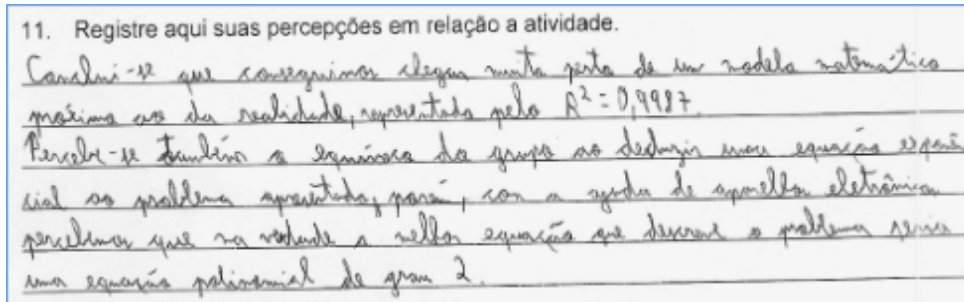 11. Registre aqui suas percepções em relação a atividade.
Conclui-se que conseguimos chegar muito perto de um modelo matemático
próximo ao da realidade, representado pelo R² = 0,9987.
Percebe-se também o equívoco do grupo ao deduzir uma equação exponen
cial ao problema apresentado, porém, com a ajuda de aparelhos eletrônicos
percebemos que na verdade a melhor equação que descreve o problema seria
uma equação polinomial de grau 2.